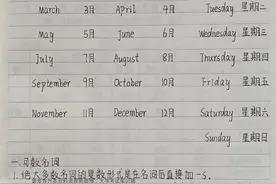 March 3月 April 4月 Tuesday 星期二
May 5月 June 6月 Wednesday 星期三
July 7月 August 8月 Thursday 星期四
September 9月 October 10月 Friday 星期五
November 11月 December 12月 Saturday 星期六
Sunday 星期日
一.可数名词
1.绝大多数名词的复数形式是在名词后直接加-s。